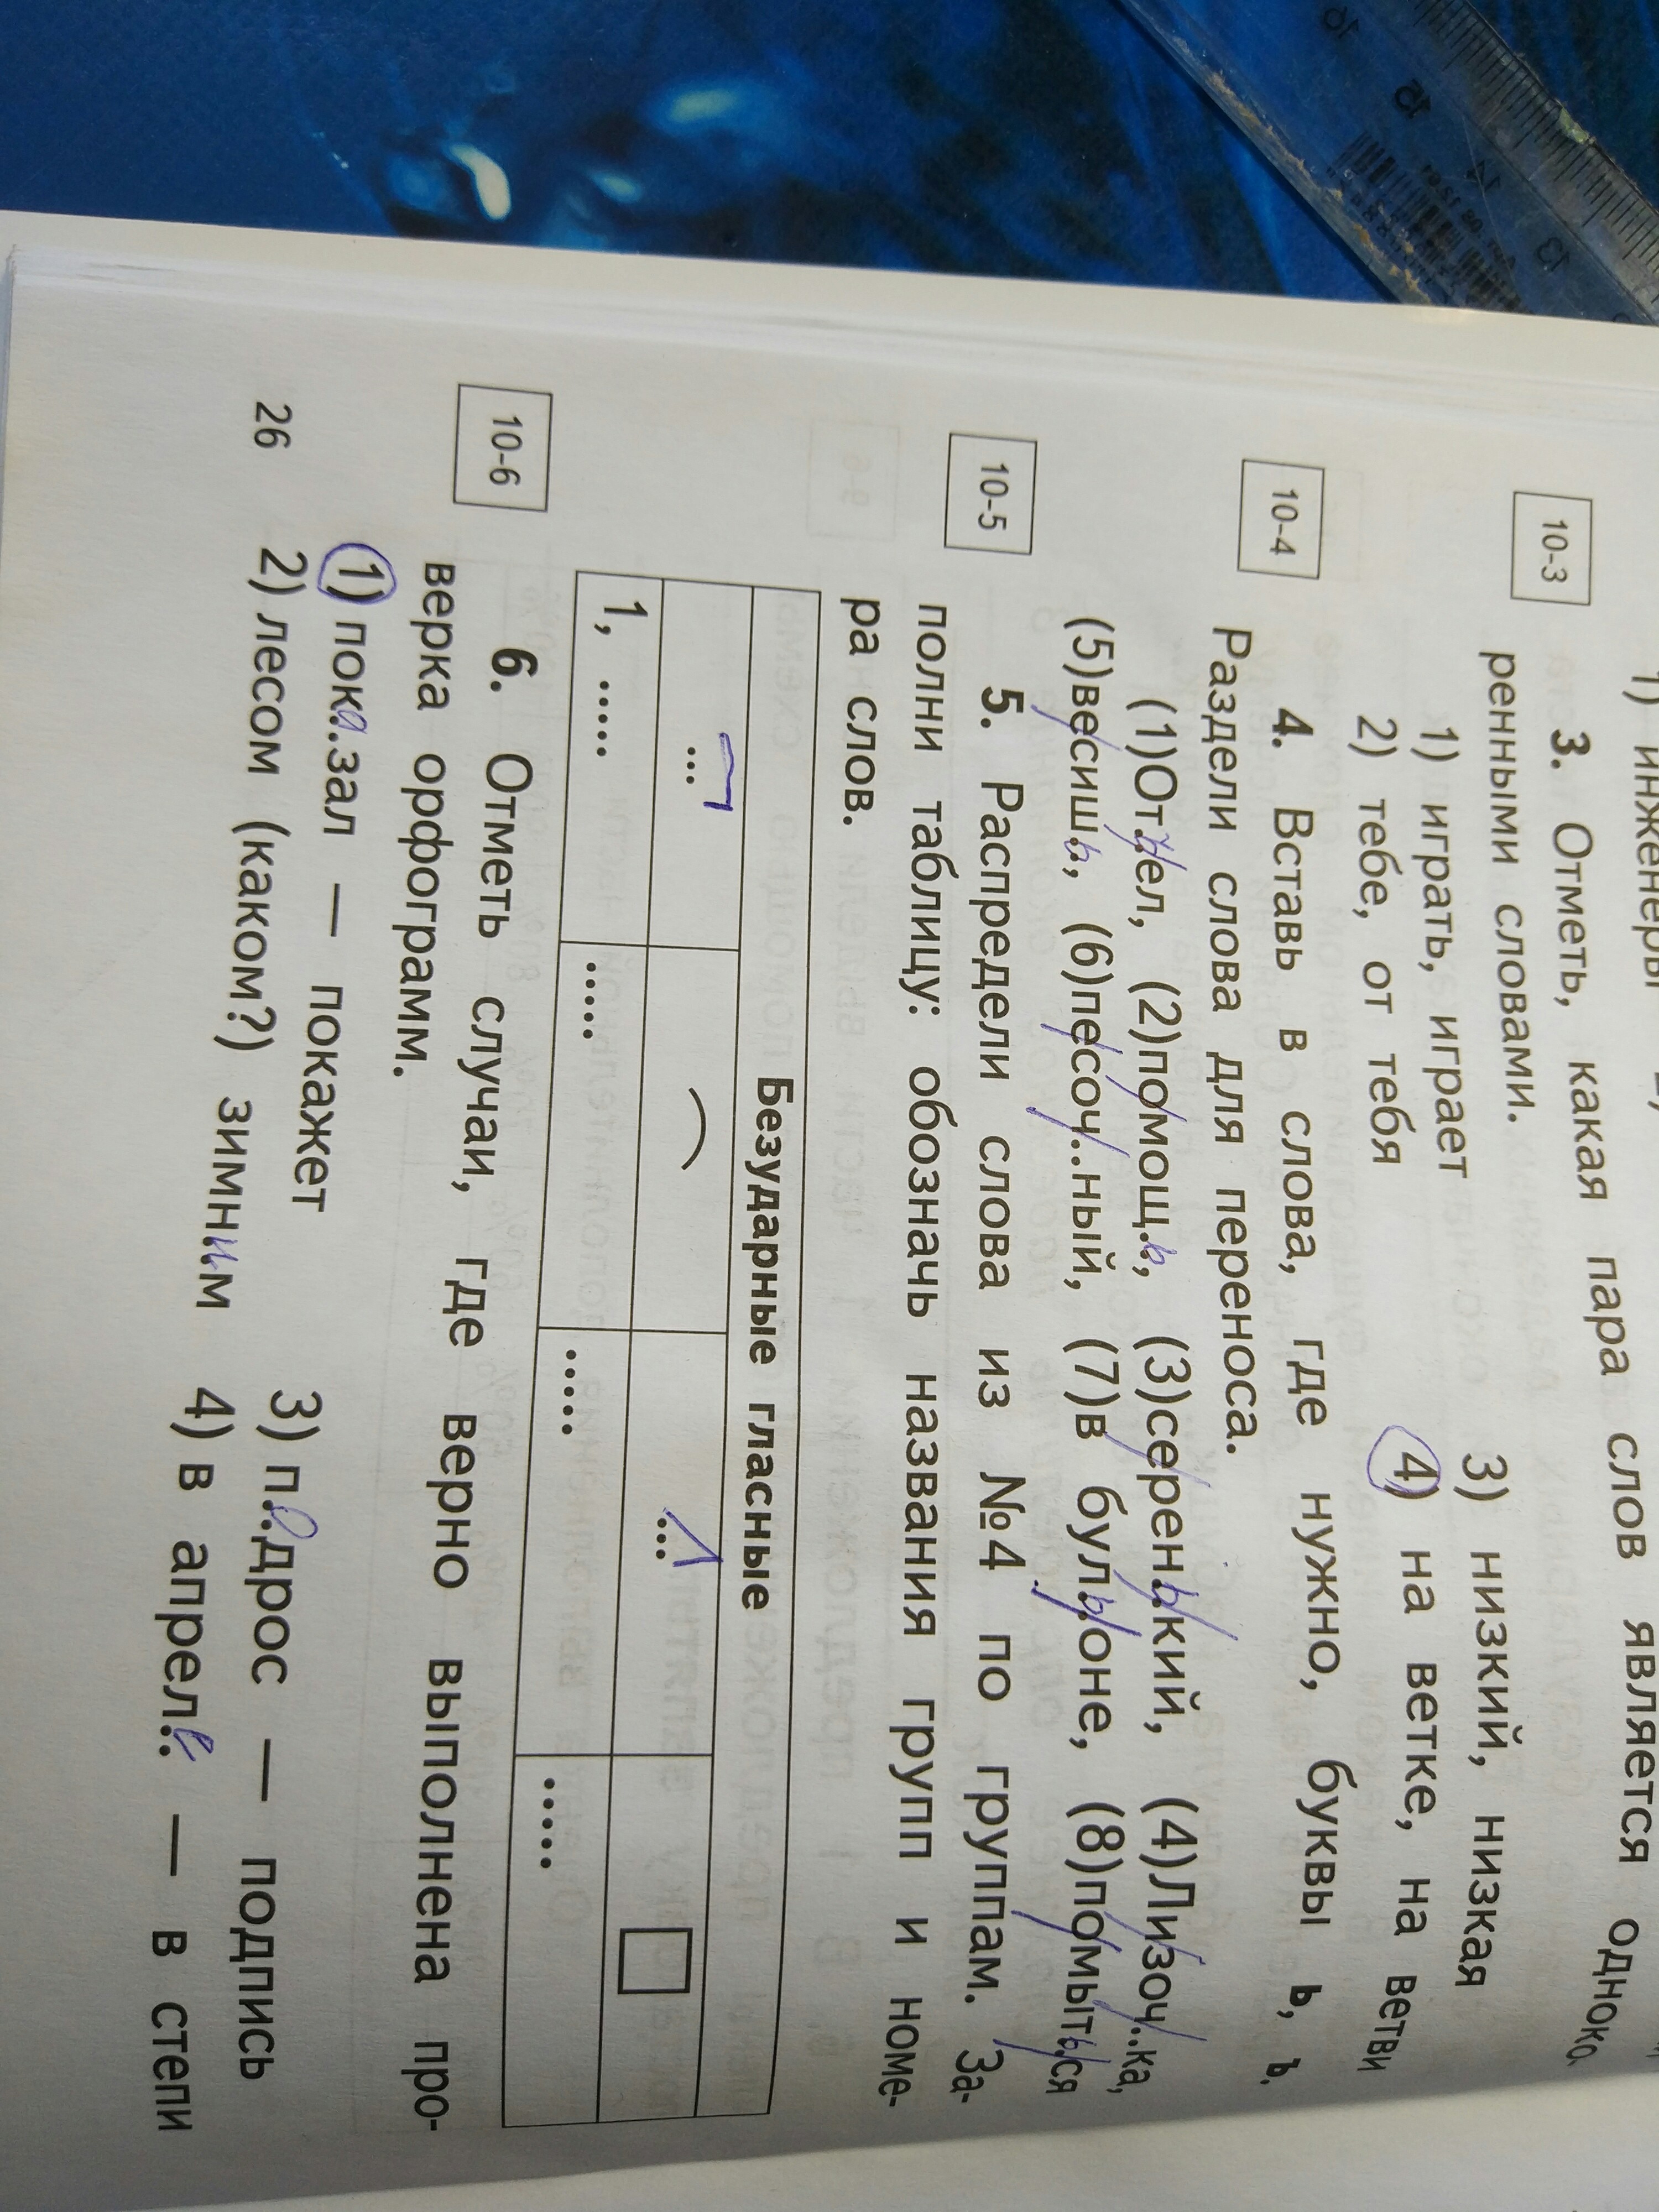 1) инженеры
3. Отметь, какая пара слов является однокоренными словами.
1) играть, играет 3) низкий, низкая
2) тебе, от тебя 4) на ветке, на ветви
10-3
4. Вставь в слова, где нужно, буквы ь, ъ.
Раздели слова для переноса.
10-4
(1)От..ъел, (2)помощ..ь, (3)серен..ький, (4)Лизоч..ка,
(5)весиш..ь, (6)песоч..ный, (7)в бул..ьоне, (8)помыт..ься
5. Распредели слова из №4 по группам. За-
полни таблицу: обозначь названия групп и номе-
ра слов.
10-5
Безударные гласные
... ...
1, ..... ..... ..... .....
6. Отметь случаи, где верно выполнена про-
верка орфограмм.
10-6
1) пок..азал — покажет 3) п..одрос — подпись
2) лесом (каком?) зимн..им 4) в апрел..е — в степи
26
15
14
13